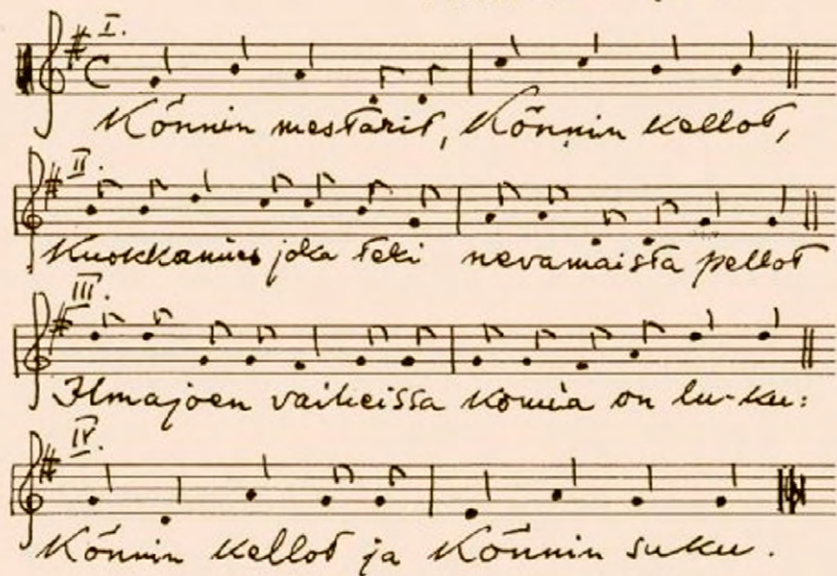 I.
Könnin mestarit, Könnin kellot,
II.
Kuokkamies joka teki nevamaista pellot
III.
Ilmajoen vaiheissa komia on lu-ku:
IV.
Könnin kellot ja Könnin suku.